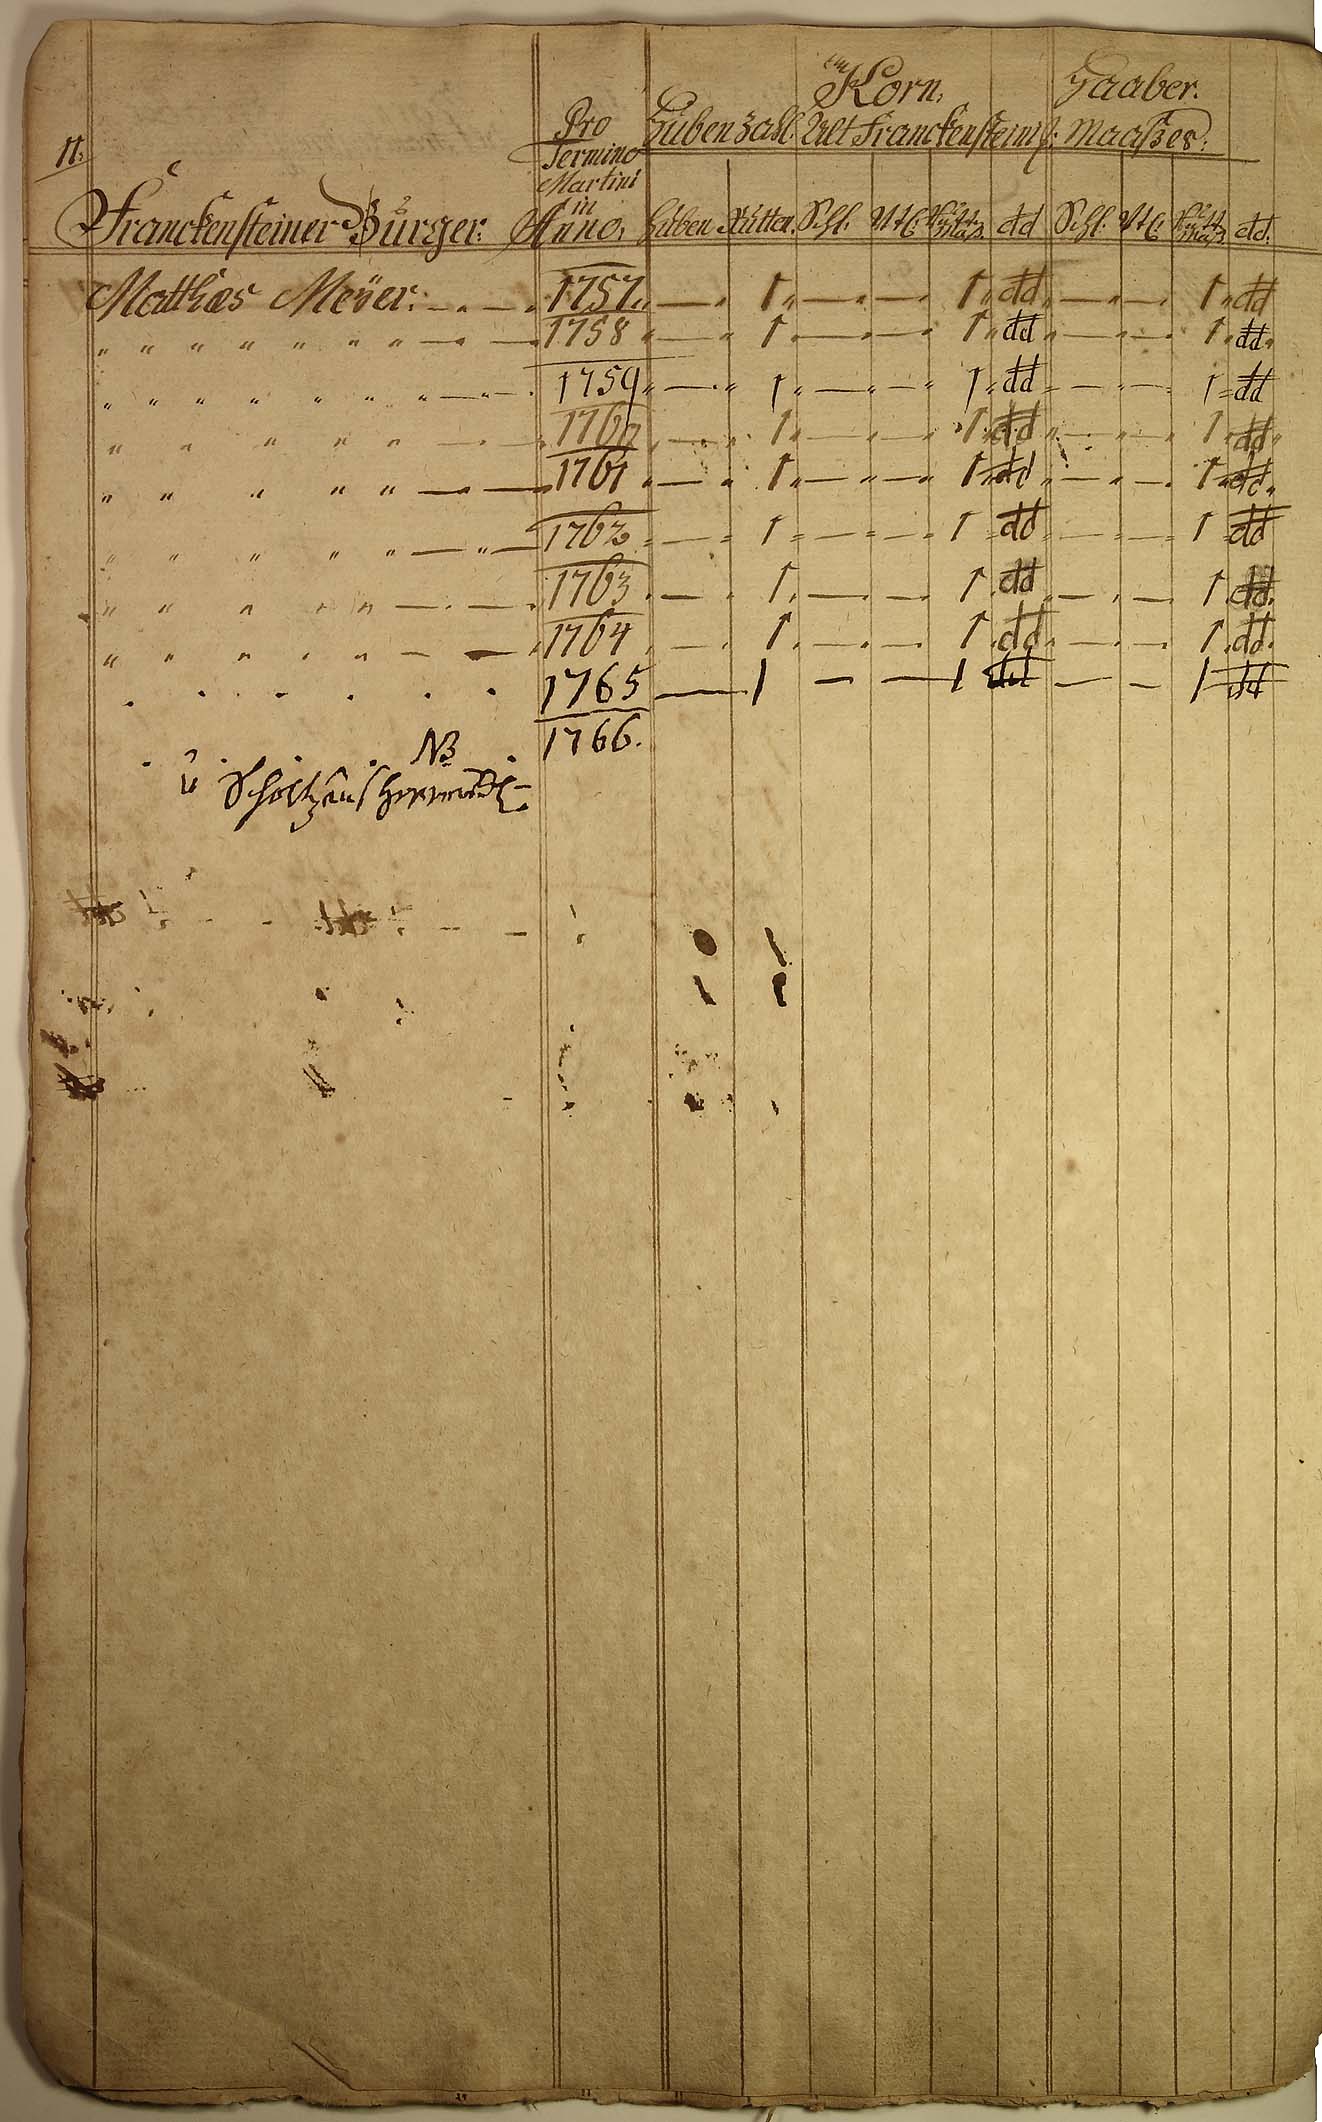 11.
Korn. Haaber.
Pro Huben Zahl. Alt Franckensteinis: Maaßes:
Termino
Martini
in
Franckensteiner Bürger: Anno, Huben Rutten. Schl. Vtl: dd Schl. Vtl: dd:
Matthæs Meÿer: 1757 1 1 dd 1 dd
" " " " " " " " 1758 1 1 dd 1 dd
" " " " " " " " 1759 1 1 dd 1 dd
" " " " " 1760 1 1 dd 1 dd
" " " " " 1761 1 1 dd 1 dd
" " " " " 1762 1 1 dd 1 dd
" " " " " 1763 1 1 dd 1 dd
" " " " " 1764 1 1 dd 1 dd
1765 1 1 dd 1 dd
NB 1766.